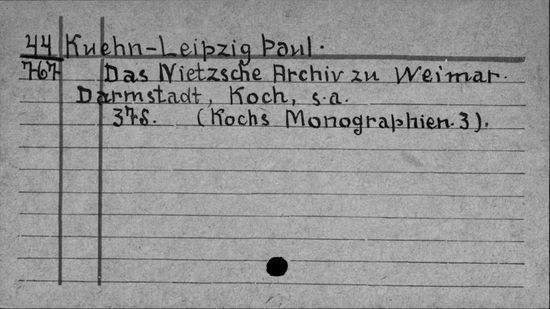 44 Kuehn-Leipzig Paul.
767 Das Nietzsche Archiv zu Weimar.
Darmstadt, Koch, s.a.
37S. (Kochs Monographien.3).